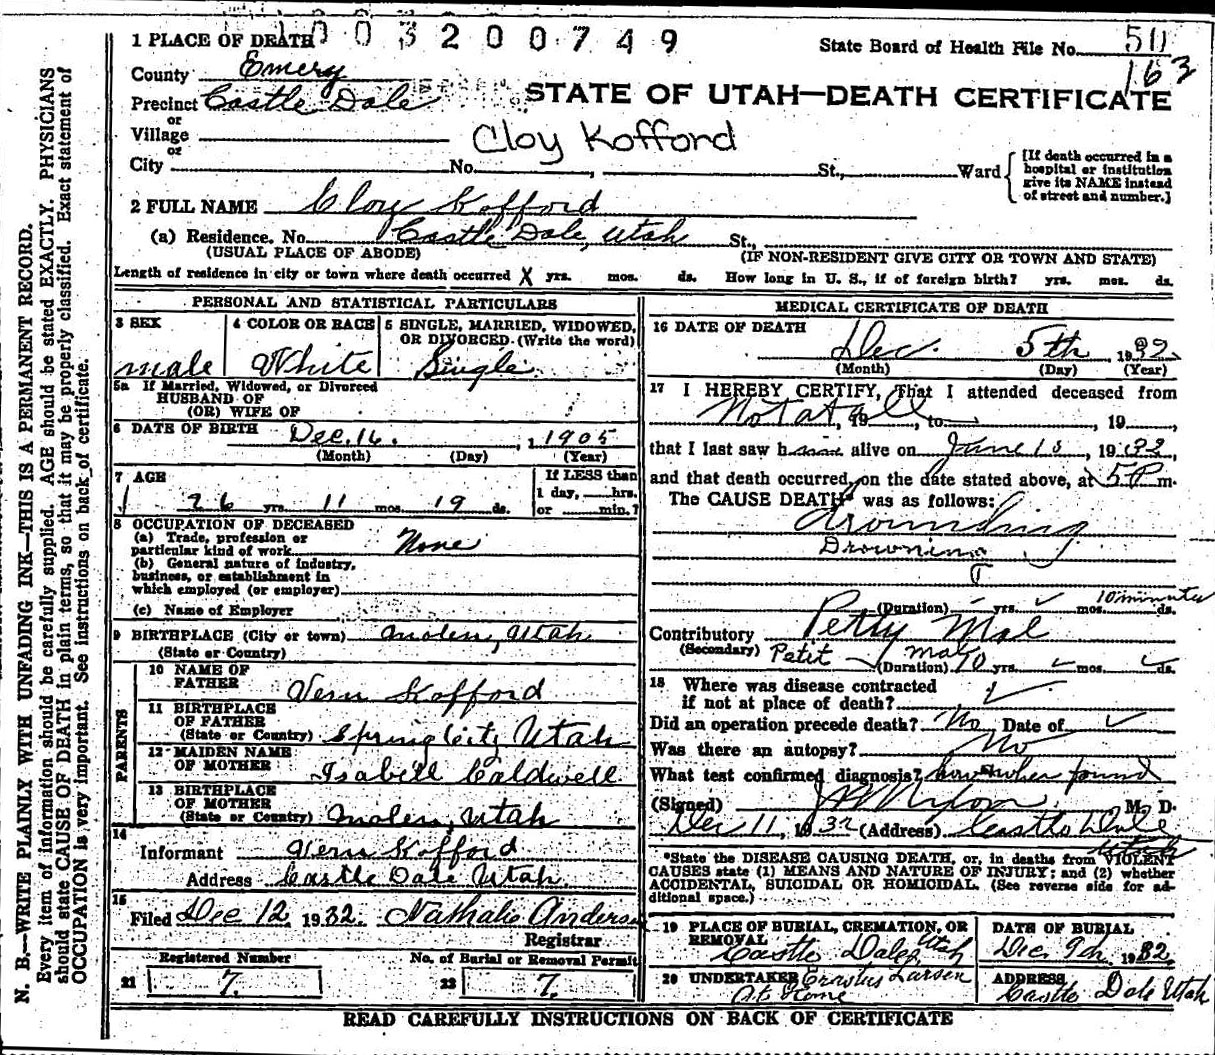 1003200749
1 PLACE OF DEATH
State Board of Health File No. 50
163
County Emery
Precinct Castle Dale
or
Village
or
City No. , St., Ward
STATE OF UTAH—DEATH CERTIFICATE
Cloy Kofford
[If death occurred in a
hospital or institution
give its NAME instead
of street and number.]
2 FULL NAME Cloy Kofford
(a) Residence. No. Castle Dale, Utah St.,
(USUAL PLACE OF ABODE) (IF NON-RESIDENT GIVE CITY OR TOWN AND STATE)
Length of residence in city or town where death occurred X yrs. mos. ds. How long in U. S., if of foreign birth? yrs. mos. ds.
PERSONAL AND STATISTICAL PARTICULARS
3 SEX 4 COLOR OR RACE 5 SINGLE, MARRIED, WIDOWED,
OR DIVORCED (Write the word)
male White Single
5a If Married, Widowed, or Divorced
HUSBAND OF
(OR) WIFE OF
6 DATE OF BIRTH Dec. 16. , 1905
(Month) (Day) (Year)
7 AGE If LESS than
1 day, hrs.
26 yrs. 11 mos. 19 ds. or min.?
8 OCCUPATION OF DECEASED
(a) Trade, profession or
particular kind of work None
(b) General nature of industry,
business, or establishment in
which employed (or employer)
(c) Name of Employer
9 BIRTHPLACE (City or town) Molen, Utah
(State or Country)
PARENTS
10 NAME OF
FATHER Vern Kofford
11 BIRTHPLACE
OF FATHER
(State or Country) Spring City Utah
12 MAIDEN NAME
OF MOTHER Isabell Caldwell
13 BIRTHPLACE
OF MOTHER
(State or Country) Molen, Utah
14
Informant Vern Kofford
Address Castle Dale Utah.
15
Filed Dec 12 1932. Nathalie Anderson
Registrar
Registered Number No. of Burial or Removal Permit
21 7. 22 7.
MEDICAL CERTIFICATE OF DEATH
16 DATE OF DEATH
Dec. 5th , 1932
(Month) (Day) (Year)
17 I HEREBY CERTIFY, That I attended deceased from
Not at all , 19 , to , 19 ,
that I last saw h alive on June 10 , 1932,
and that death occurred, on the date stated above, at 5 P m.
The CAUSE DEATH* was as follows:
Drownding
Drowning
10 minutes
(Duration) yrs. mos. ds.
Contributory Petty Mal
(Secondary) Petit mal
(Duration) 10 yrs. mos. ds.
18 Where was disease contracted
if not at place of death?
Did an operation precede death? No Date of
Was there an autopsy? No
What test confirmed diagnosis? how when found
(Signed) M. D.
Dec 11, 1932 (Address) Castle Dale
Utah
*State the DISEASE CAUSING DEATH, or, in deaths from VIOLENT
CAUSES state (1) MEANS AND NATURE OF INJURY; and (2) whether
ACCIDENTAL, SUICIDAL OR HOMICIDAL. (See reverse side for ad-
ditional space.)
19 PLACE OF BURIAL, CREMATION, OR
REMOVAL
Castle Dale, Utah
DATE OF BURIAL
Dec. 9th, 1932.
20 UNDERTAKER Erastus Larsen
At Home
ADDRESS
Castle Dale Utah
READ CAREFULLY INSTRUCTIONS ON BACK OF CERTIFICATE
N. B.—WRITE PLAINLY WITH UNFADING INK—THIS IS A PERMANENT RECORD.
Every item of information should be carefully supplied. AGE should be stated EXACTLY. PHYSICIANS
should state CAUSE OF DEATH in plain terms, so that it may be properly classified. Exact statement of
OCCUPATION is very important. See instructions on back of certificate.